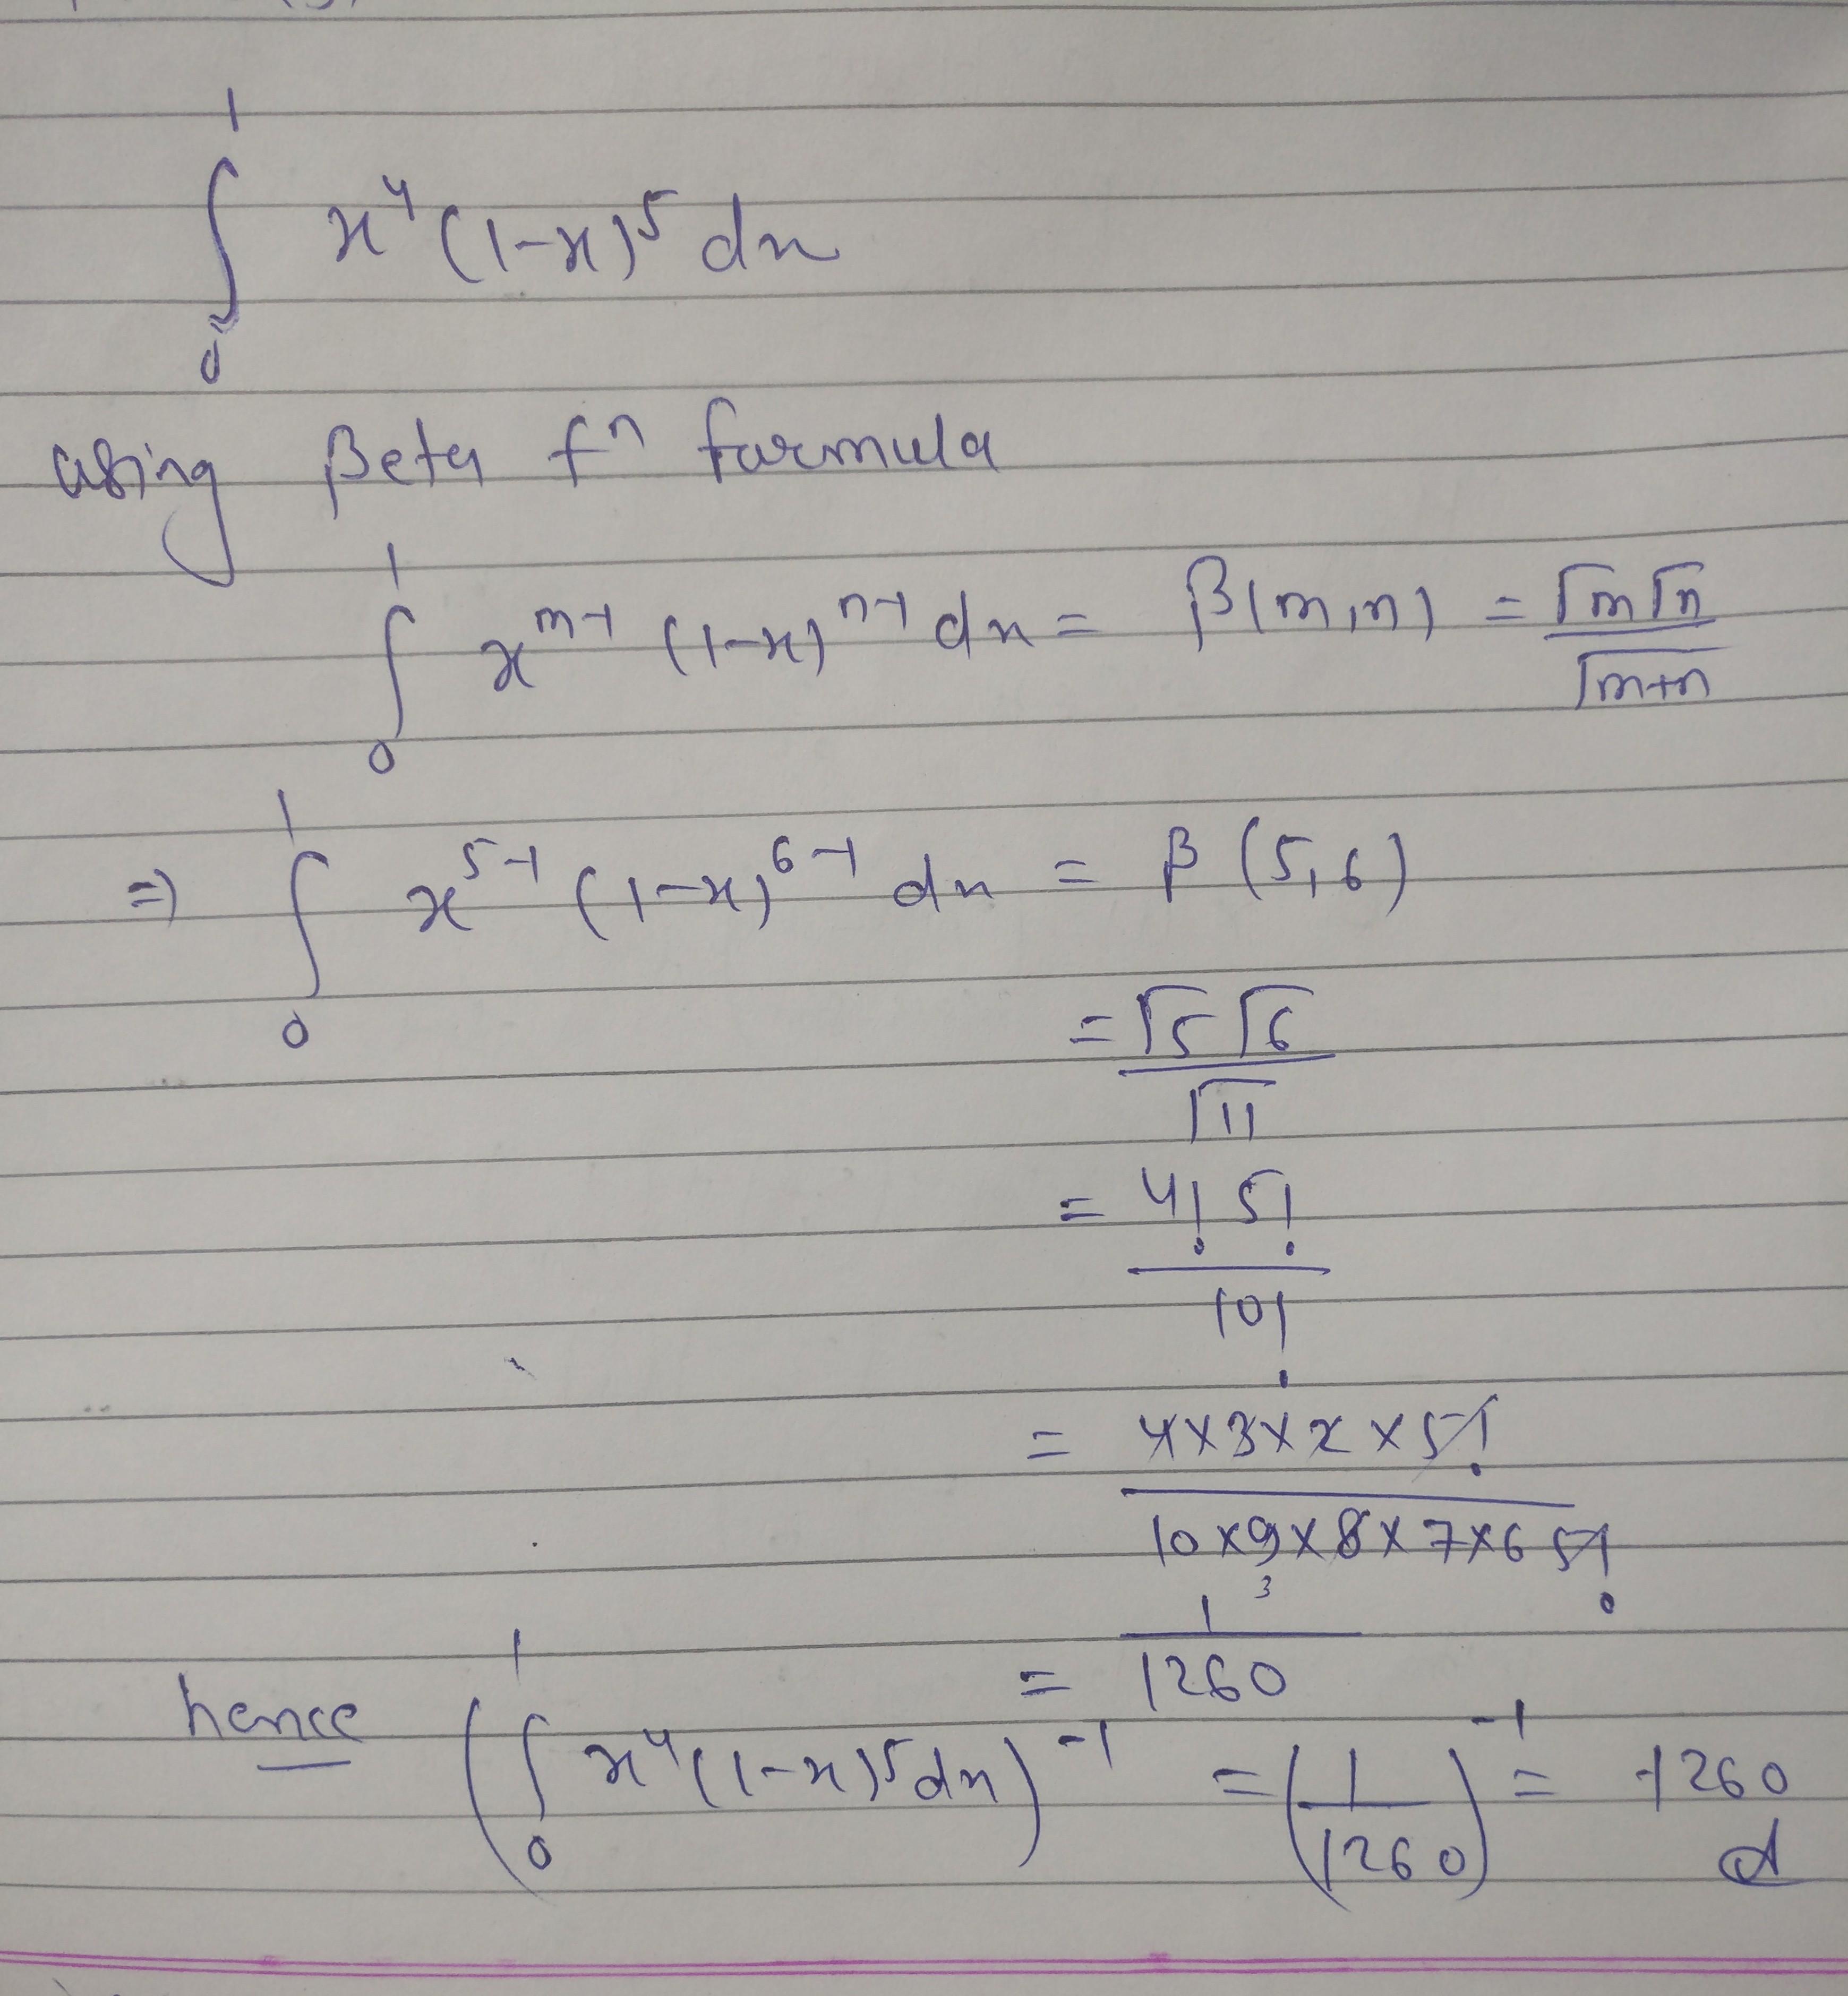 ∫₀¹ x⁴ (1-x)⁵ dx
using Beta fⁿ formula
∫₀¹ x^(m-1) (1-x)^(n-1) dx = β(m,n) = Γm Γn / Γm+n
⇒ ∫₀¹ x^(5-1) (1-x)^(6-1) dx = β (5,6)
= Γ5 Γ6 / Γ11
= 4! 5! / 10!
= 4×3×2×5! / 10×9×8×7×6 5!
3
= 1 / 1260
hence (∫₀¹ x⁴(1-x)⁵dx)⁻¹ = (1/1260)⁻¹ = 1260